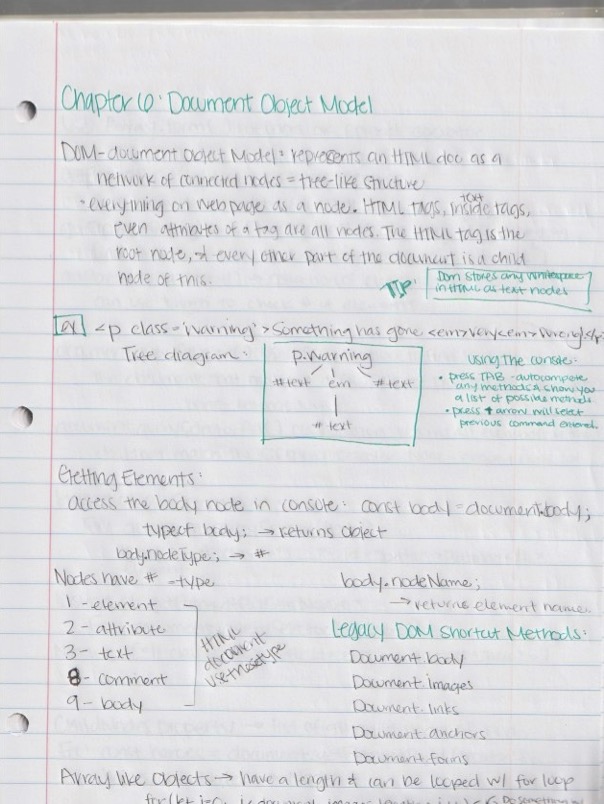 Chapter 6: Document Object Model
DOM - document Object Model: represents an HTML doc as a
network of connected nodes = tree-like structure
· everything on webpage as a node. HTML tags, text inside tags,
Even attributes of a tag are all nodes. The HTML tag is the
root node, & every other part of the document is a child
node of this.
TIP: Dom stores any whitespace
in HTML as text nodes
ex <p class='warning'>Something has gone <em>very<em>
Tree diagram:
p.warning
#text em #text
#text
Using The console:
• press TAB - autocomplete
any methods & show you
a list of possible methods
• press ↑ arrow will select
previous command entered.
Getting Elements:
access the body node in console: const body = document.body;
typeof body; → returns object
body.nodeType; → #
Nodes have # - type
1 - element
2 - attribute
3 - text
8 - comment
9 - body
HTML
document
use these type
body.nodeName;
→ returns element name.
Legacy DOM Shortcut Methods:
Document.body
Document.images
Document.links
Document.anchors
Document.forms
Array like objects → have a length & can be looped w/ for loop